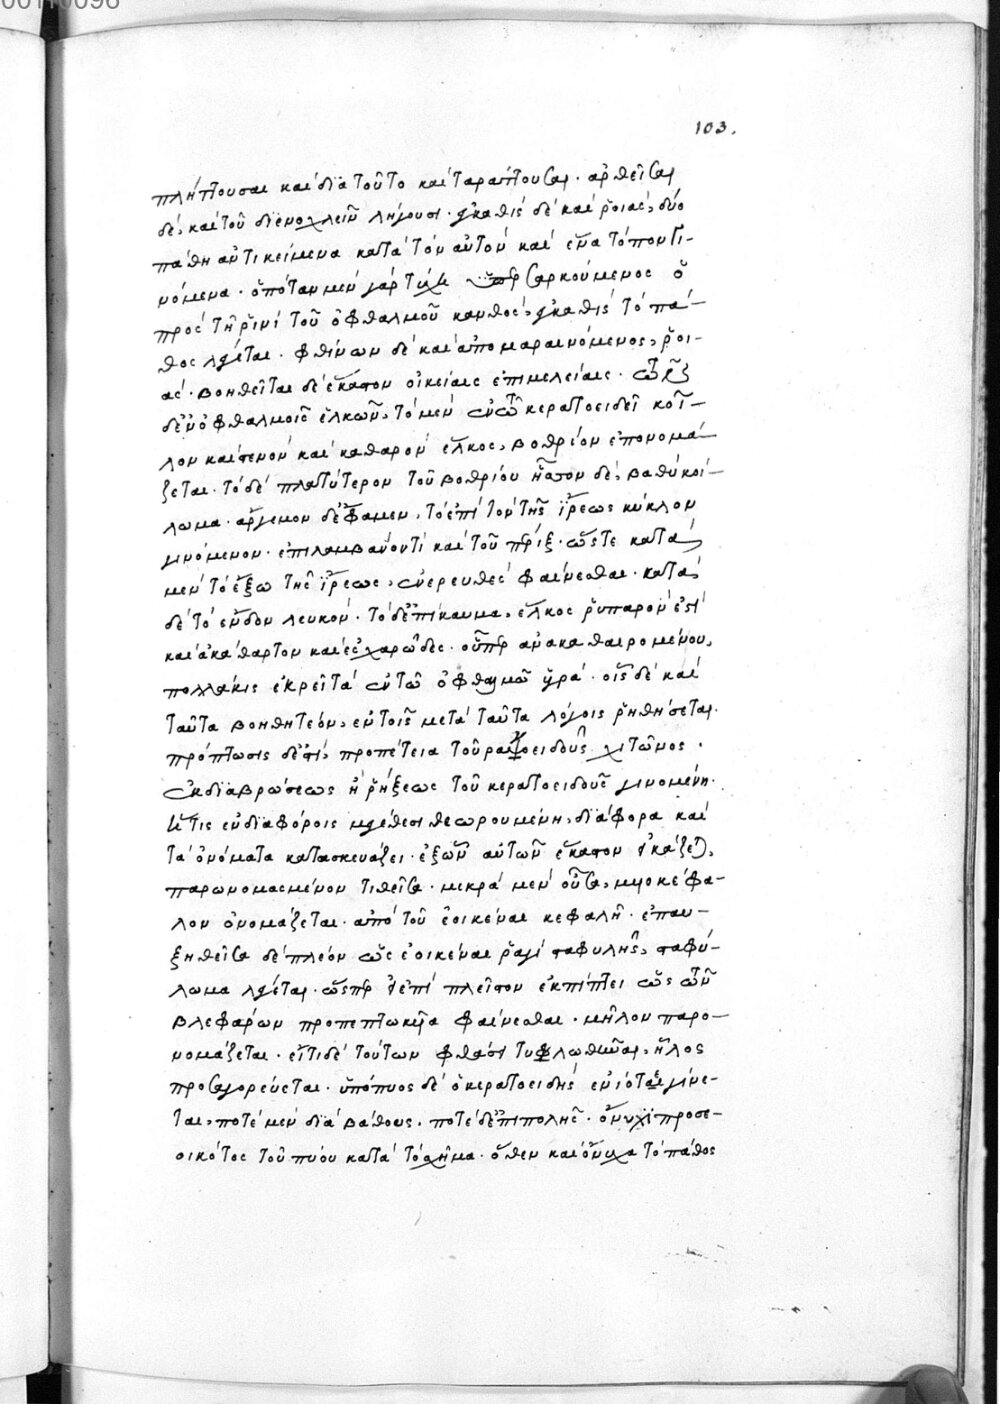 00110096
103.
πλήττουσαι καὶ διὰ τοῦτο καὶ ταράττουσαι· ἀρθεῖσαι
δὲ, καὶ τοῦ διενοχλεῖν λήγουσι· ἐγκανθὶς δὲ καὶ ῥοιὰς, δύο
πάθη ἀντικείμενα κατὰ τὸν αὐτὸν καὶ ἕνα τόπον γι-
νόμενα· ὁπόταν μὲν γὰρ τύχῃ ὑπερσαρκούμενος ὁ
πρὸς τῇ ῥινὶ τοῦ ὀφθαλμοῦ κανθὸς, ἐγκανθὶς τὸ πά-
θος λέγεται· φθίνων δὲ καὶ ἀπομαραινόμενος, ῥοι-
ὰς· βοηθεῖται δὲ ἕκαστον οἰκείαις ἐπιμελείαις· τῶν
δὲ ἐν ὀφθαλμοῖς ἑλκῶν, τὸ μὲν ἐν τῶ κερατοειδεῖ κοῖ-
λον καὶ στενὸν καὶ καθαρὸν ἕλκος, βοθρίον ἐπονομά-
ζεται· τὸ δὲ πλατύτερον τοῦ βοθρίου ἧττον δὲ, βαθὺ κοί-
λωμα· ἄργεμον δὲ φαμεν, τὸ ἐπὶ τὸν τῆς ἴρεως κύκλον
γινόμενον· ἐπιλαμβάνον τὶ καὶ τοῦ πέριξ· ὥστε κατὰ
μὲν τὸ ἔξω τῆς ἴρεως, ἐνερευθὲς φαίνεσθαι· κατὰ
δὲ τὸ ἔνδον λευκόν· τὸ δὲ ἐπίκαυμα, ἕλκος ῥυπαρὸν ἐστὶ
καὶ ἀκάθαρτον καὶ ἐσχαρῶδες· οὗπερ ἀνακαθαιρομένου,
πολλάκις ἐκρεῖ τὰ ἐν τῶ ὀφθαλμῶ ὑγρά· οἷς δὲ καὶ
ταῦτα βοηθητέον, ἐν τοῖς μετὰ ταῦτα λόγοις ῥηθήσεται·
πρόπτωσις δέ ἐστι, προπέτεια τοῦ ραγοειδοῦς χιτῶνος·
ἐκ διαβρώσεως ἢ ῥήξεως τοῦ κερατοειδοῦς γινομένη·
ἥτις ἐν διαφόροις μεγέθεσι θεωρουμένη, διάφορα καὶ
τὰ ὀνόματα κατασκευάζει· ἐξ ὧν αὐτῶν ἕκαστον εἰκάζεται,
παρωνομασμένον τιθεῖσα· μικρὰ μὲν οὖσα, μυοκέφα-
λον ὀνομάζεται· ἀπὸ τοῦ ἐοικέναι κεφαλῇ· ἐπαυ-
ξηθεῖσα δὲ πλέον ὡς ἐοικέναι ῥαγὶ σταφυλῆς, σταφύ-
λωμα λέγεται· ὥσπερ ἐπὶ πλεῖστον ἐκπίπτει ὡς τῶν
βλεφάρων προπεπτωκυῖα φαίνεσθαι· μῆλον παρο-
νομάζεται· εἴ τι δὲ τούτων φθάσῃ τυλωθῆναι, ἧλος
προσαγορεύεται· ὑπόπυος δὲ ὁ κερατοειδὴς ἐνίοτε γίνε-
ται, ποτὲ μὲν διὰ βάθους, ποτὲ δὲ ἐπιπολῆς· ὄνυχι προσε-
οικότος τοῦ πύου κατὰ τὸ σχῆμα· ὅθεν καὶ ὄνυχα τὸ πάθος